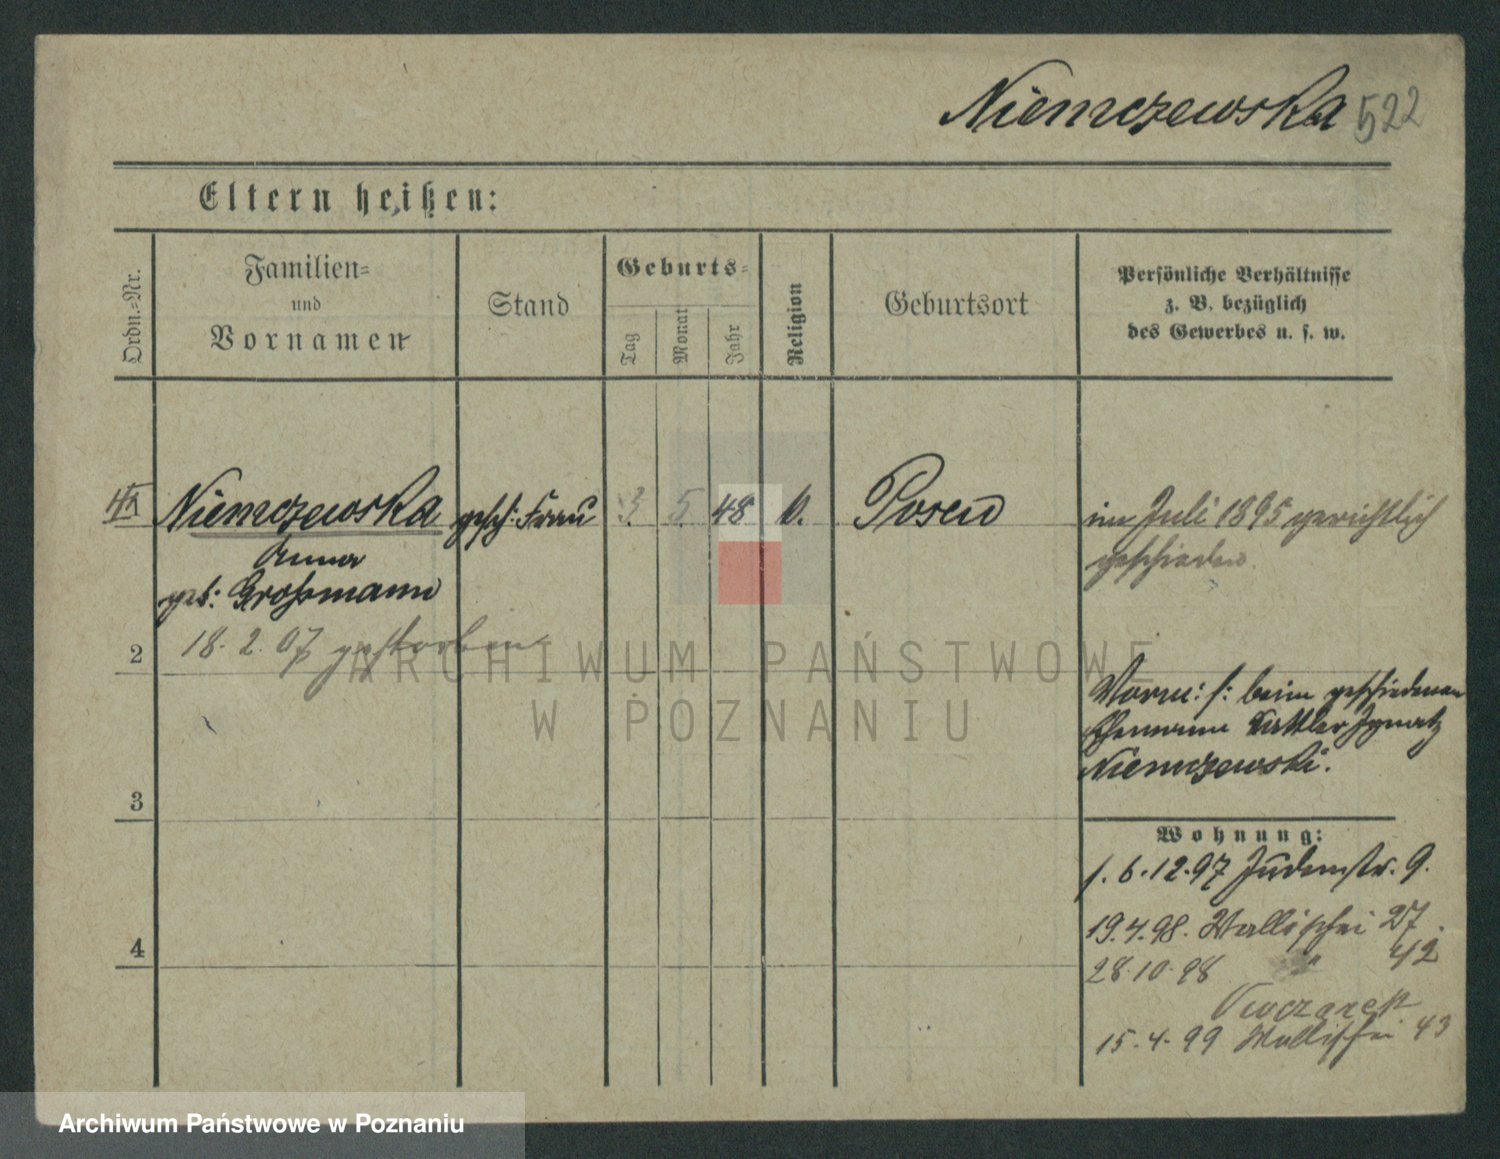 Niemczewska 522
Eltern heißen:
Ordn.-Nr.
Familien-
und
Vornamen
Stand
Geburts-
Tag
Monat
Jahr
Religion
Geburtsort
Persönliche Verhältnisse
z. B. bezüglich
des Gewerbes u. s. w.
Niemczewska gesch. Frau 3 5 48 k. Posen im Juli 1895 gerichtlich
geschieden
Anna
geb: Großmann
18. 2. 07 gestorben
2
ARCHIWUM PAŃSTWOWE
W POZNANIU
Vorm: s: beim geschiedenen
Ehemann Sattler Ignatz
Niemczewski.
3
Wohnung:
f. 6.12.97 Judenstr. 9.
19.4.98. Wallischei 27.
4
28.10.98 " 42
15.4.99 Wallischei 43
Archiwum Państwowe w Poznaniu